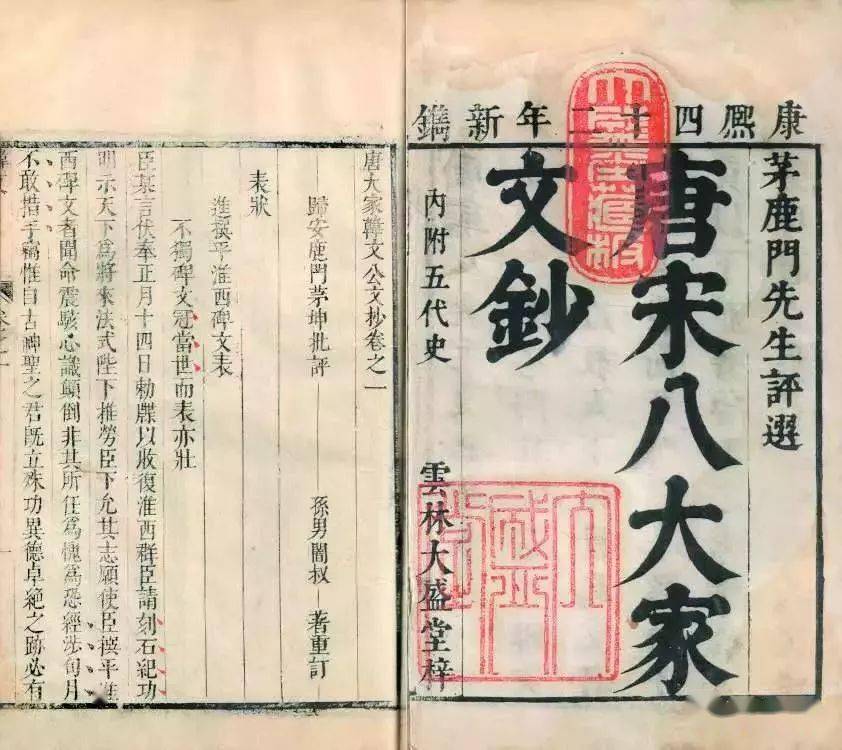 康熙四十二年新鐫
茅鹿門先生評選
唐宋八大家
文鈔
內附五代史
雲林大盛堂梓
大盛堂藏板
大盛堂
唐大家韓文公文抄卷之一
歸安鹿門茅坤批評
孫男闇叔著重訂
表狀
進撰平淮西碑文表
不獨碑文冠當世而表亦壯
臣某言伏奉正月十四日勅牒以收復淮西群臣請刻石紀功
明示天下爲將來法式陛下推勞臣下允其志願使臣撰平淮
西碑文者聞命震駭心識顛倒非其所任爲愧爲恐經涉旬月
不敢措手竊惟自古神聖之君既立殊功異德卓絕之跡必有